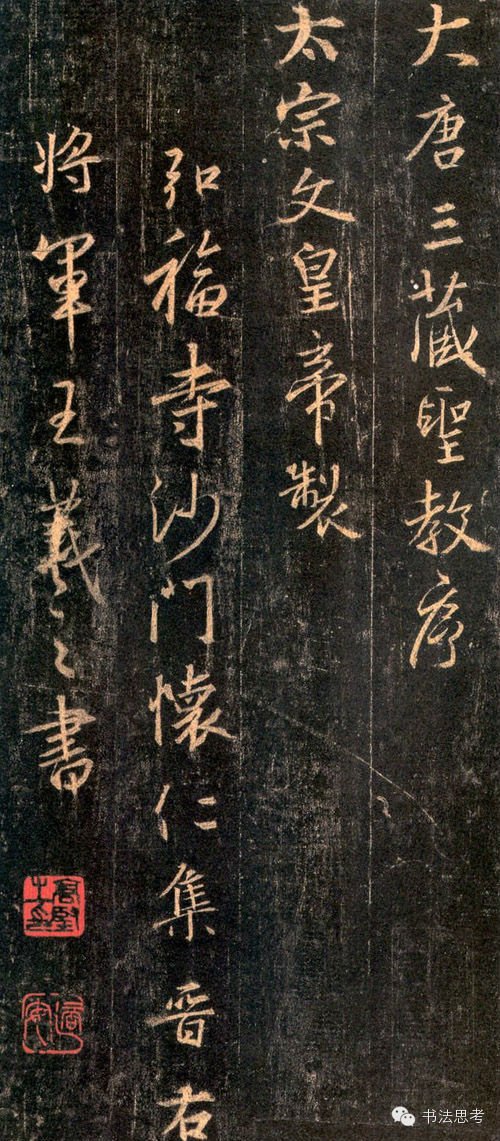 大唐三藏聖教序
太宗文皇帝製
弘福寺沙門懷仁集晋右
將軍王羲之書
书法思考